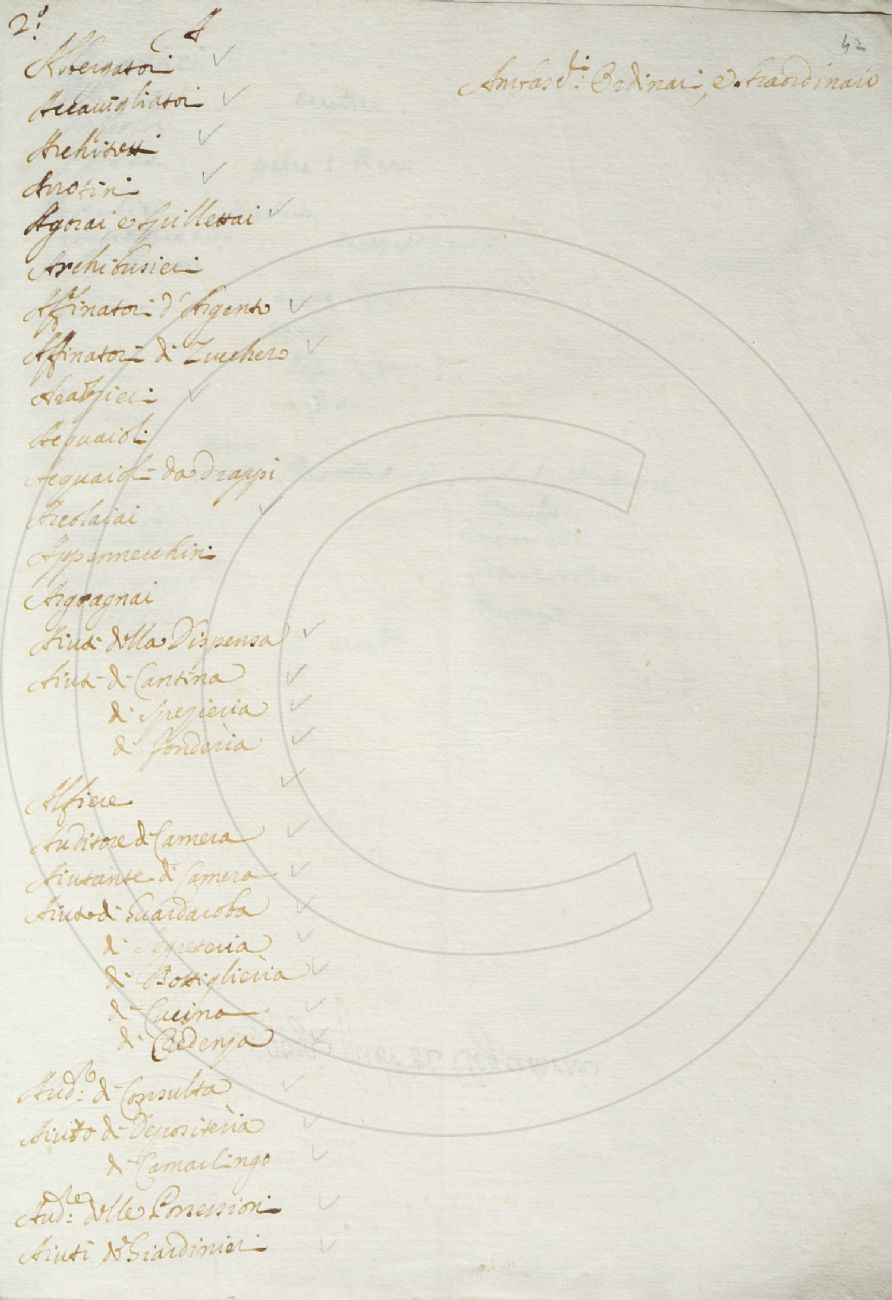 2.º A
42
Albergatori
Accavigliatori
Architetti
Arrotini
Agorai e Spillettai
Archibusieri
Affinatori d'Argento
Affinatori di Zucchero
Arazzieri
Acquaioli
Acquaioli da Drappi
Arcolaiai
Appennecchini
Argagnai
Aiuti della Dispensa
Aiuti di Cantina
di Spezieria
di fonderia
Alfiere
Auditore di Camera
Aiutante di Camera
Aiuto di Guardaroba
di Segreteria
di Bottiglieria
di Cucina
di Credenza
Aud.re di Consulta
Aiuto di Depositeria
di Camarlingo
Aud.re delle Possessioni
Aiuti de Giardinieri
Ambasc.ri Ordinari, e straordinari